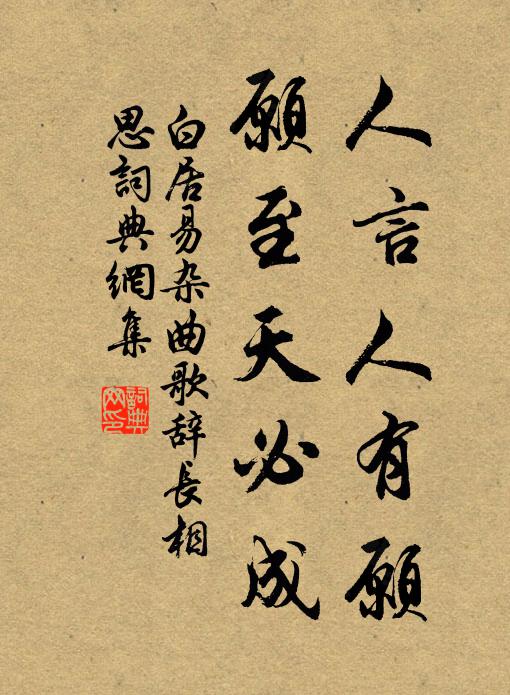 人言人有願
願至天必成
白居易杂曲歌辞長相
思詞典網集
詞典
网印